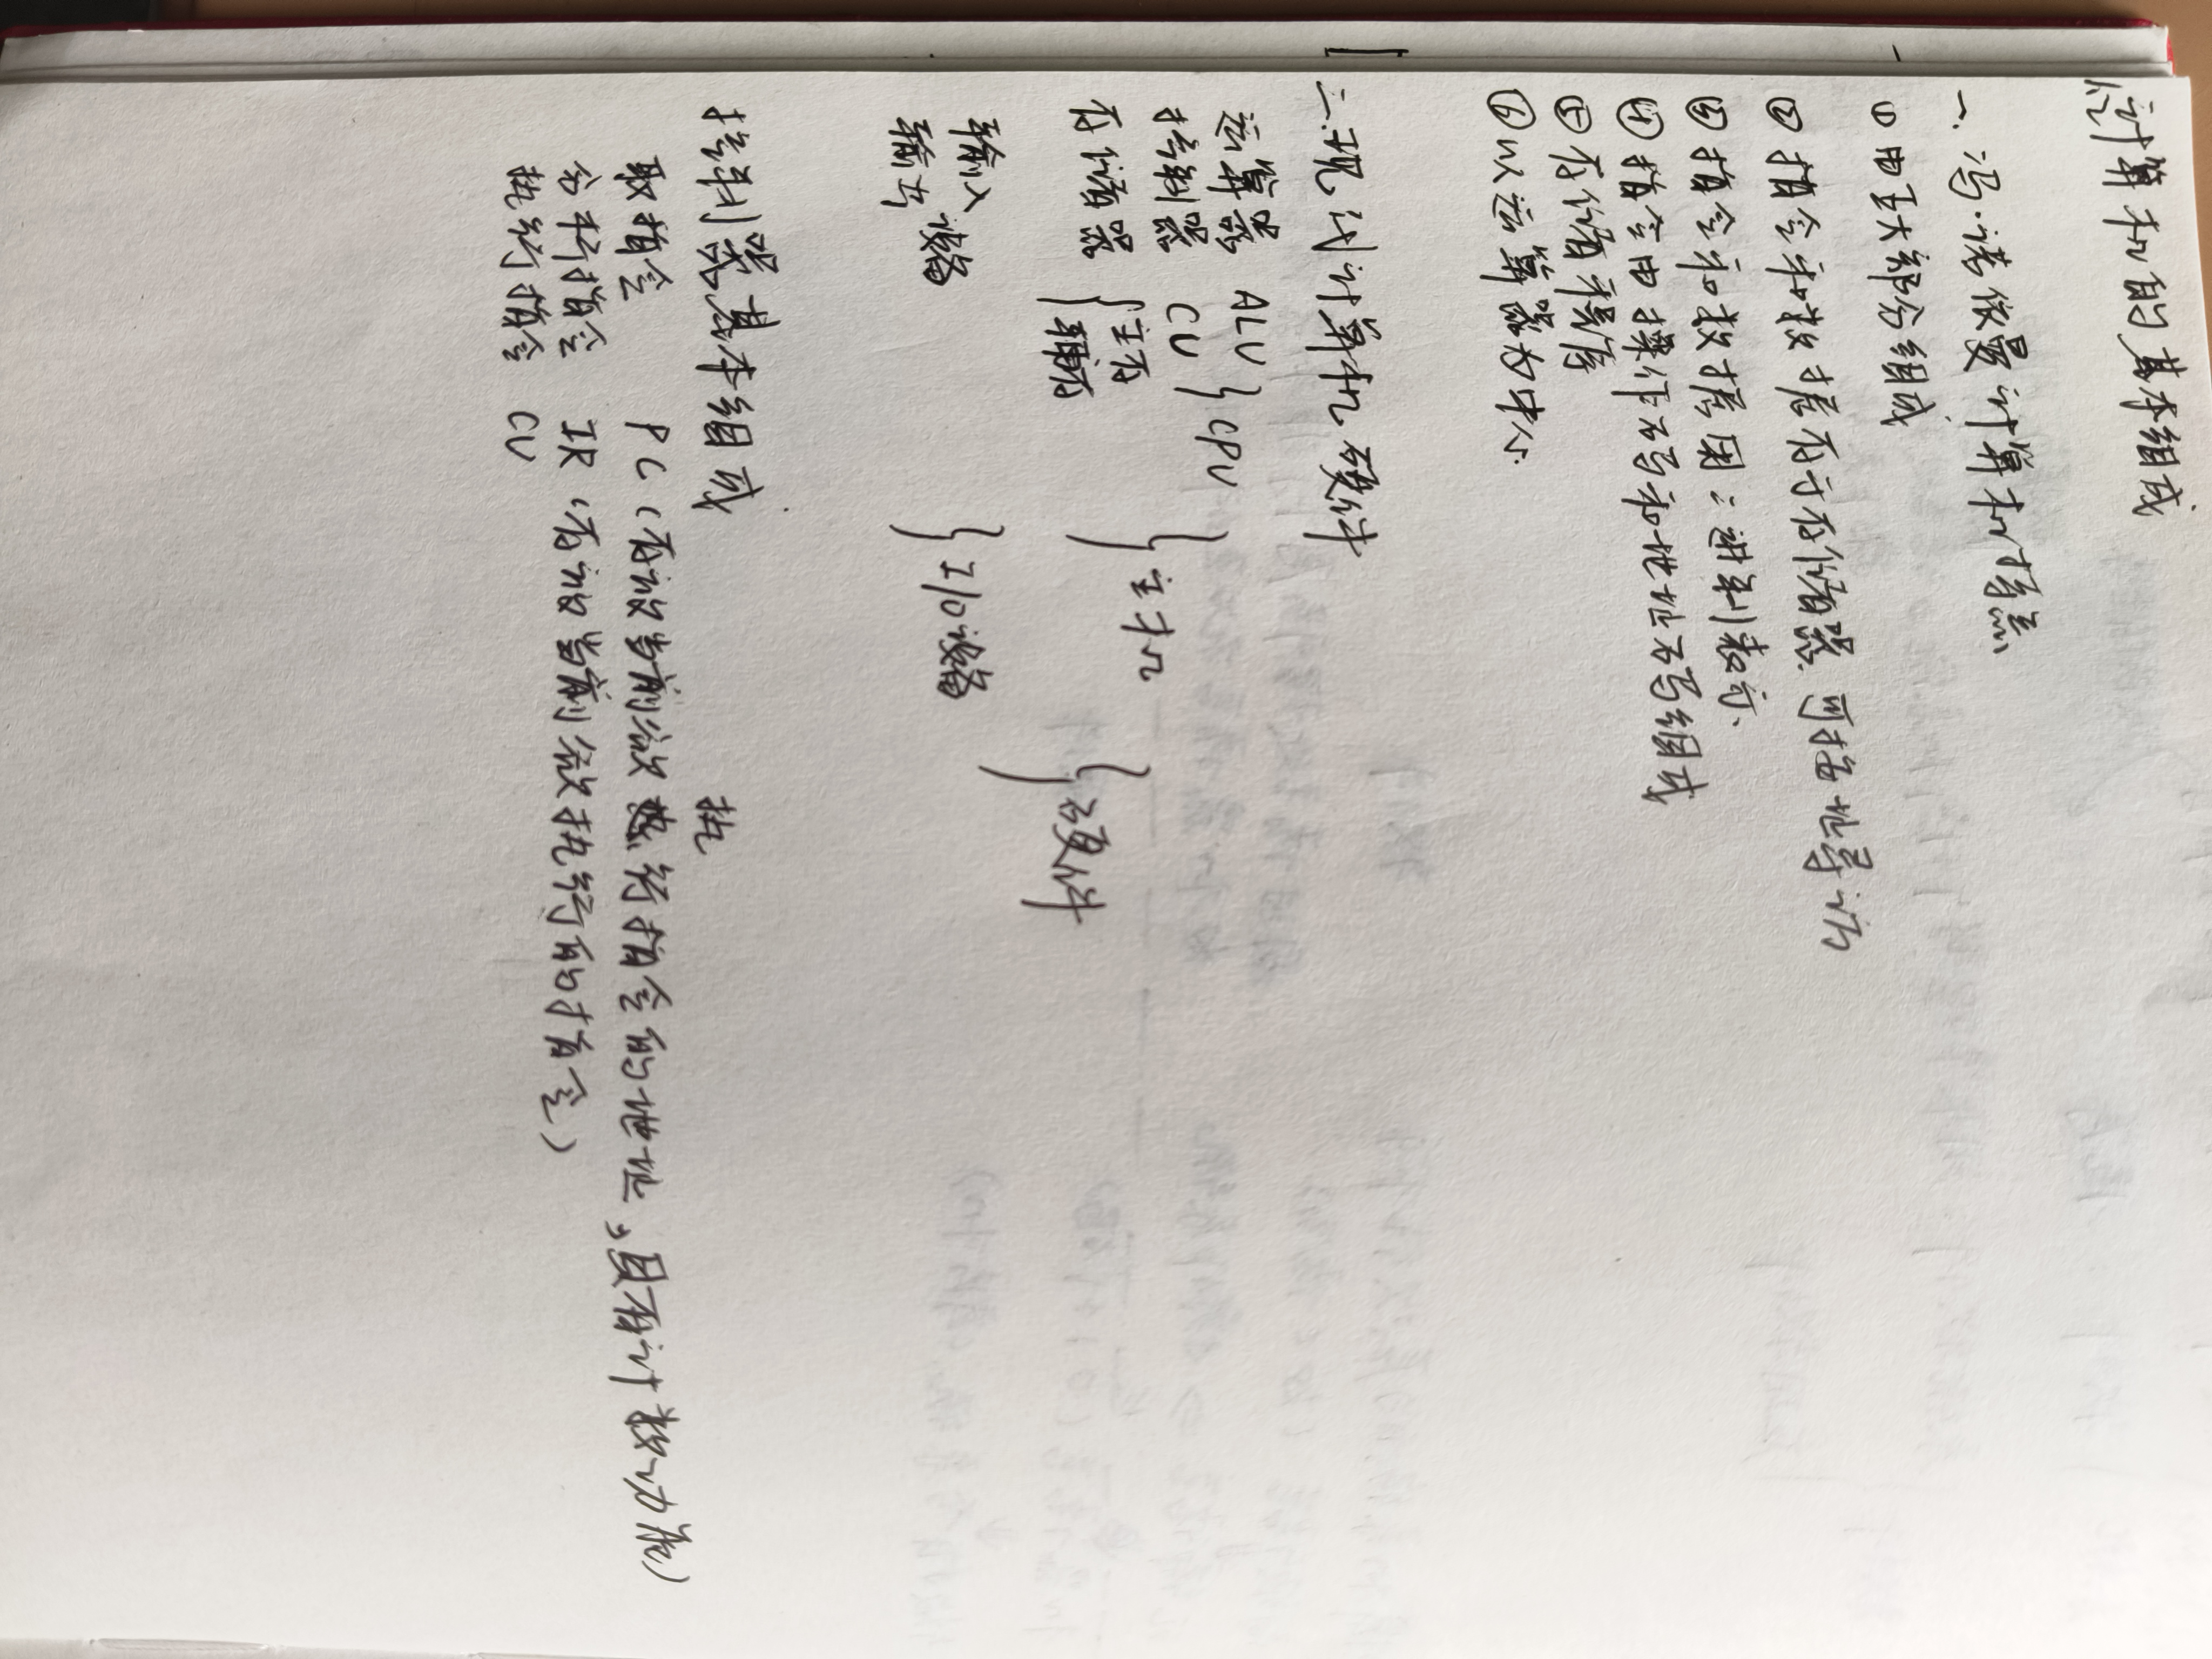 计算机的基本组成
一.冯·诺依曼计算机特点
① 由五大部分组成
② 指令和数据存于存储器.可按地寻访
③ 指令和数据用二进制表示.
④ 指令由操作码和地址码组成
⑤ 存储程序
⑥ 以运算器为中心.
二.现代计算机硬件
运算器 ALU } CPU
控制器 CU
存储器 { 主存 } 主机
辅存
} 硬件
输入
设备 } I/O设备
输出
控制器基本组成
执
取指令 PC(存放当前欲行指令的地址,具有计数功能)
分析指令 IR(存放当前欲执行的指令)
执行指令 CU